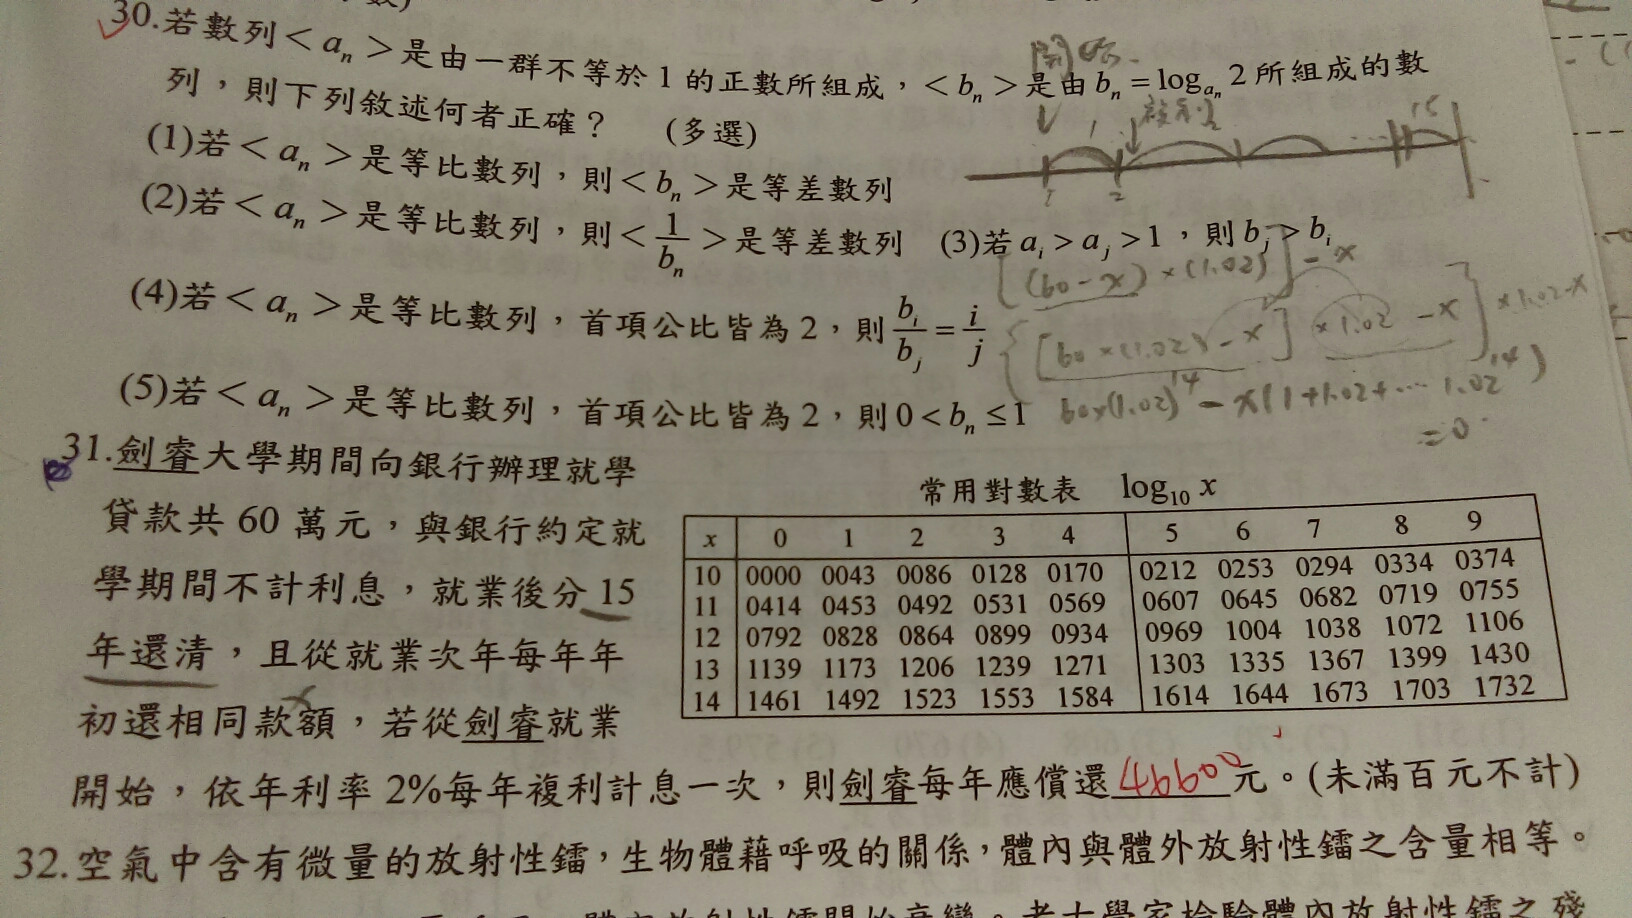 30.若數列<aₙ>是由一群不等於1的正數所組成，<bₙ>是由bₙ=log_{aₙ}2所組成的數
列，則下列敘述何者正確？ (多選)
(1)若<aₙ>是等比數列，則<bₙ>是等差數列
(2)若<aₙ>是等比數列，則<1/bₙ>是等差數列 (3)若aᵢ>aⱼ>1，則bⱼ>bᵢ
(4)若<aₙ>是等比數列，首項公比皆為2，則bᵢ/bⱼ=i/j
(5)若<aₙ>是等比數列，首項公比皆為2，則0<bₙ≤1
1 15
1 2
[(60-x)×(1.02)]-x
{[60×(1.02)-x]×1.02-x]×1.02-x
60×(1.02)¹⁴-x(1+1.02+…1.02¹⁴)
=0
31.劍睿大學期間向銀行辦理就學
貸款共60萬元，與銀行約定就
學期間不計利息，就業後分15
年還清，且從就業次年每年年
x
初還相同款額，若從劍睿就業
開始，依年利率2%每年複利計息一次，則劍睿每年應償還46600元。(未滿百元不計)
常用對數表 log₁₀ x
x 0 1 2 3 4 5 6 7 8 9
10 0000 0043 0086 0128 0170 0212 0253 0294 0334 0374
11 0414 0453 0492 0531 0569 0607 0645 0682 0719 0755
12 0792 0828 0864 0899 0934 0969 1004 1038 1072 1106
13 1139 1173 1206 1239 1271 1303 1335 1367 1399 1430
14 1461 1492 1523 1553 1584 1614 1644 1673 1703 1732
32.空氣中含有微量的放射性鐳，生物體藉呼吸的關係，體內與體外放射性鐳之含量相等。